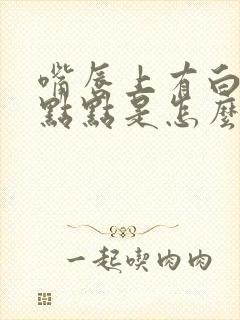 嘴唇上有白
點點是怎麼
一起喫肉肉